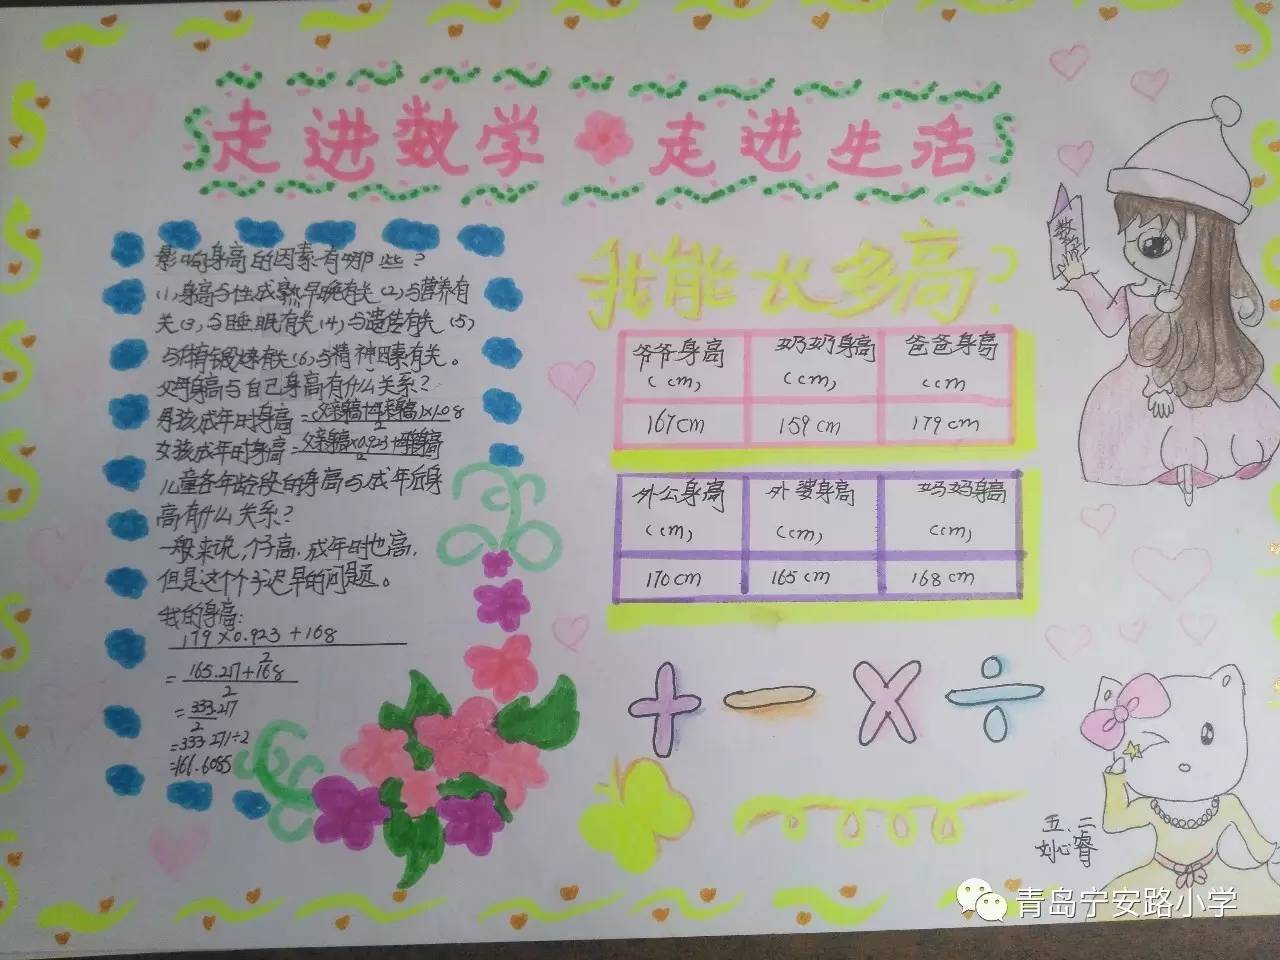 走进数学 走进生活
影响身高的因素有哪些？
(1)身高与性成熟早晚有关(2)与营养有
关(3)与睡眠有关(4)与遗传有关(5)
与体育锻炼有关(6)与精神因素有关。
父母身高与自己身高有什么关系？
男孩成年时身高=(父亲身高+母亲身高)×1.08
2
女孩成年时身高=父亲身高×0.923+母亲身高
2
儿童各年龄段的身高与成年后身
高有什么关系？
一般来说,个子高,成年时也高,
但是这个个子迟早的问题。
我的身高:
179×0.923+168
2
=165.217+168
2
=333.217
2
=333.271÷2
=166.6085
我能长多高？
爷爷身高 奶奶身高 爸爸身高
(cm) (cm) (cm
167cm 159cm 179cm
外公身高 外婆身高 妈妈身高
(cm) (cm) (cm)
170cm 165cm 168cm
+ − × ÷
数学
五、二
刘心睿
青岛宁安路小学